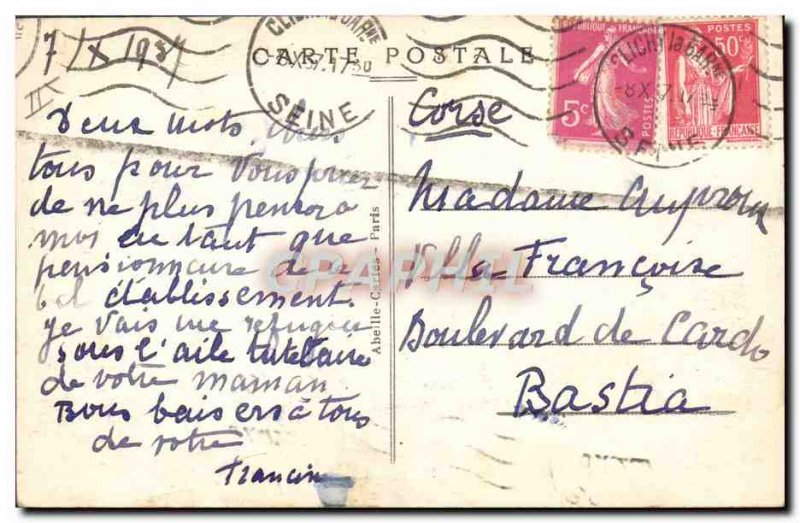 7/X 1937
CARTE POSTALE
CLICHY la GARENNE
SEINE
-8X37.17 30
POSTES
5c
50c
REPUBLIQUE FRANÇAISE
CLICHY la GARENNE
-8X37
SEINE
Deux mots
tous pour vous prier
de ne plus penser à
moi en tant que
pensionnaire de
bel établissement.
Je vais me réfugier
sous l'aile tutélaire
de votre maman
Bons baisers à tous
de votre
Francin
Abeille-Cartes - Paris
Corse
Madame
Villa Françoise
Boulevard de Cardo
Bastia
GRAPHIL